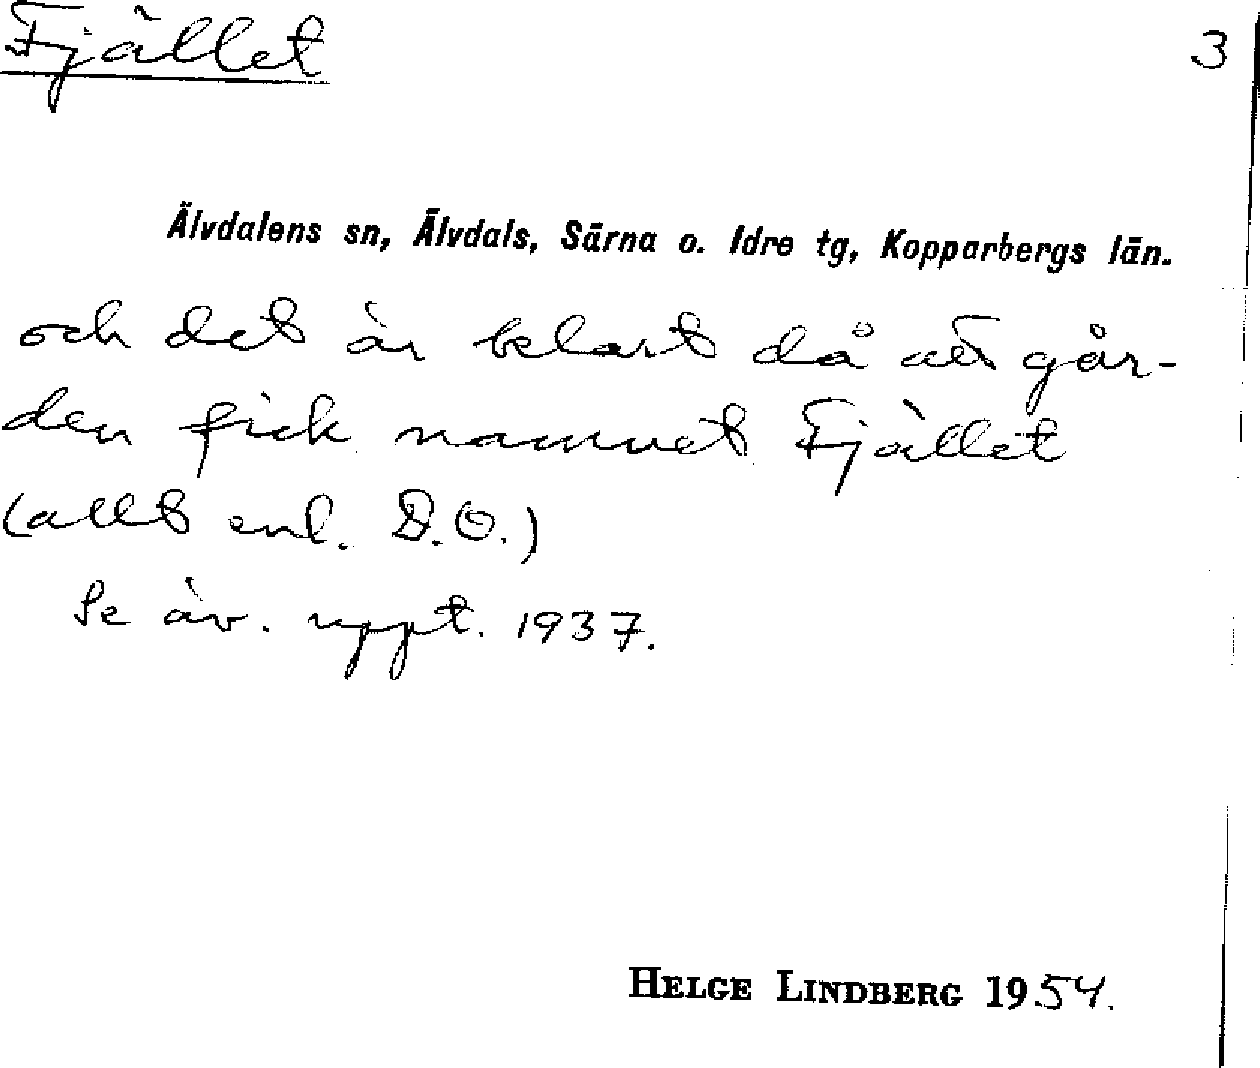 Fjället 3
Älvdalens sn, Älvdals, Särna o. Idre tg, Kopparbergs län.
och det är klart då att går-
den fick namnet Fjället
(allt enl. D.O.)
Se äv. uppt. 1937.
HELGE LINDBERG 1954.